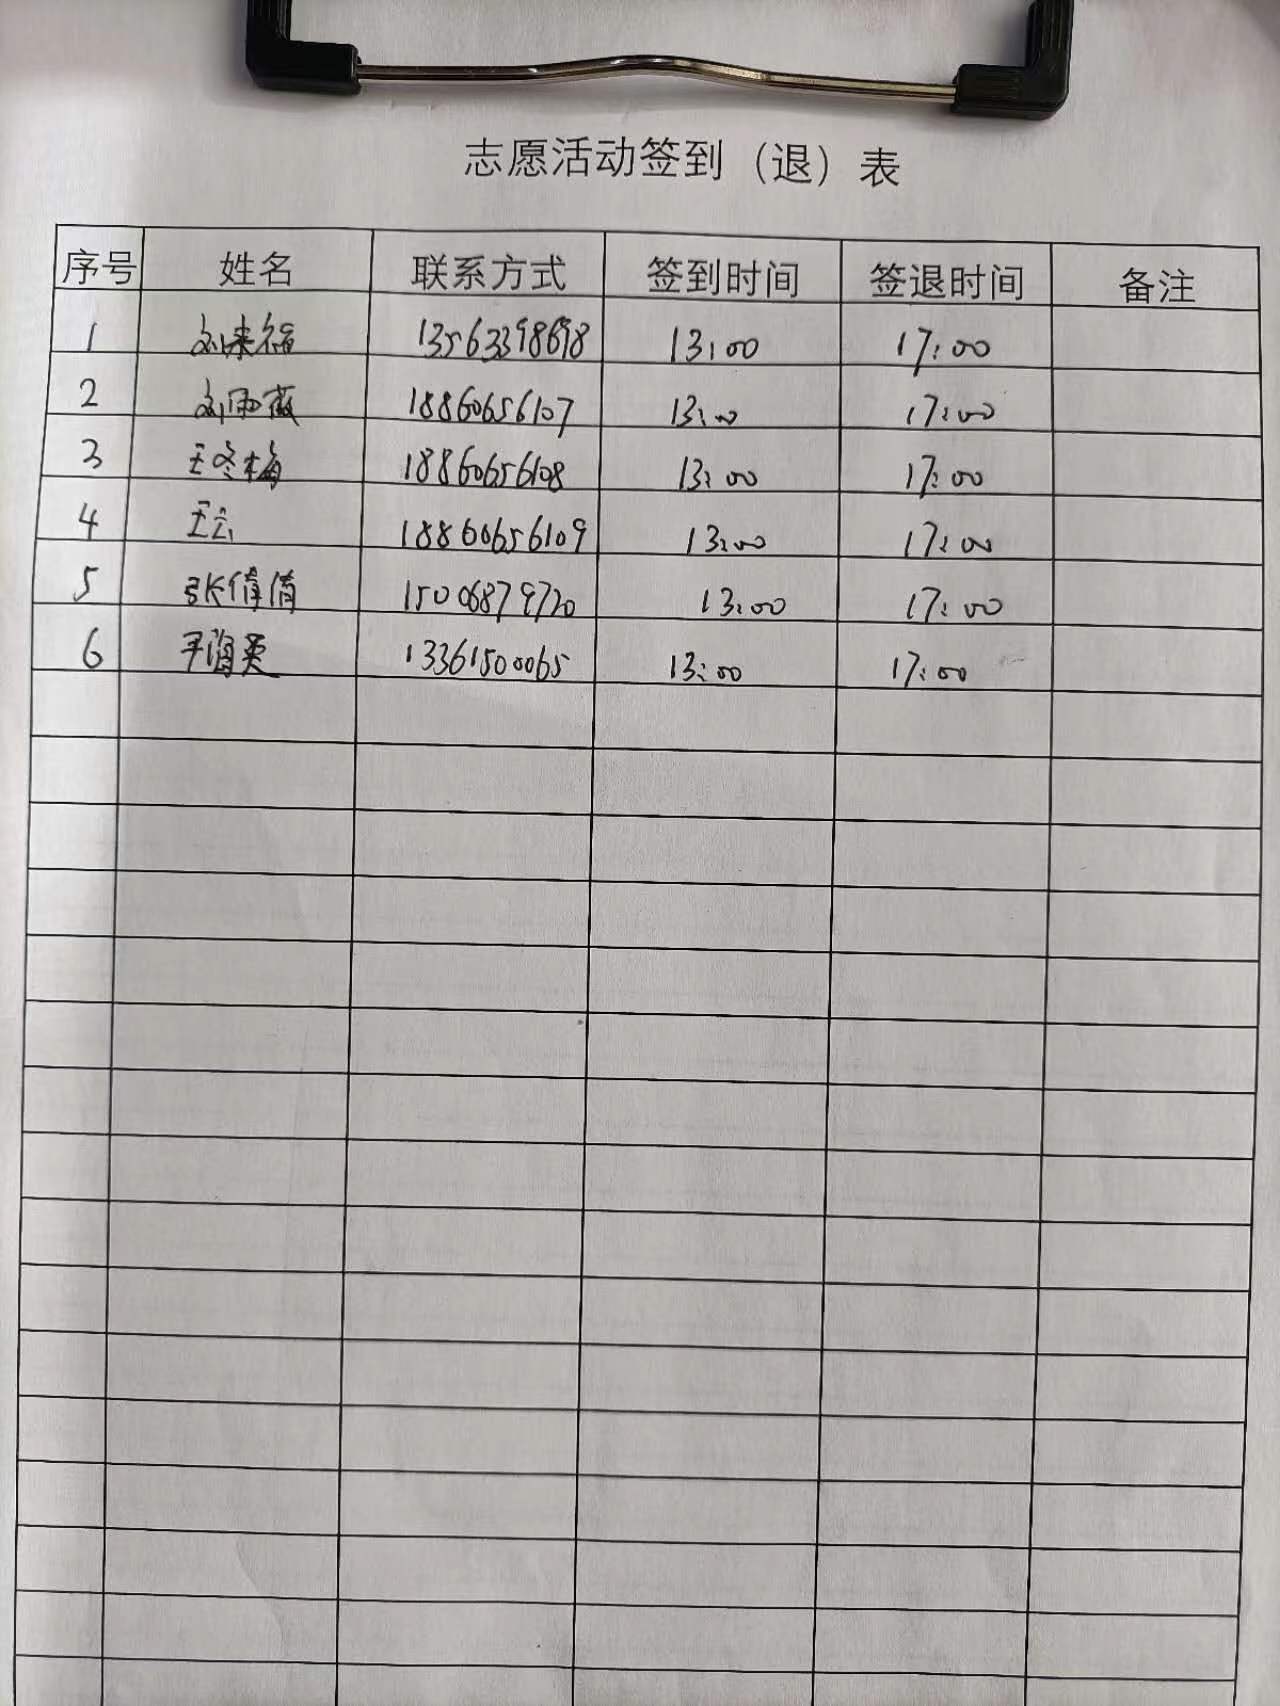 志愿活动签到（退）表
序号 姓名 联系方式 签到时间 签退时间 备注
1 刘来福 13563398698 13:00 17:00
2 刘雨薇 18860656107 13:00 17:00
3 王冬梅 18860656108 13:00 17:00
4 王云 18860656109 13:00 17:00
5 张倩倩 15006879720 13:00 17:00
6 13361500065 13:00 17:00